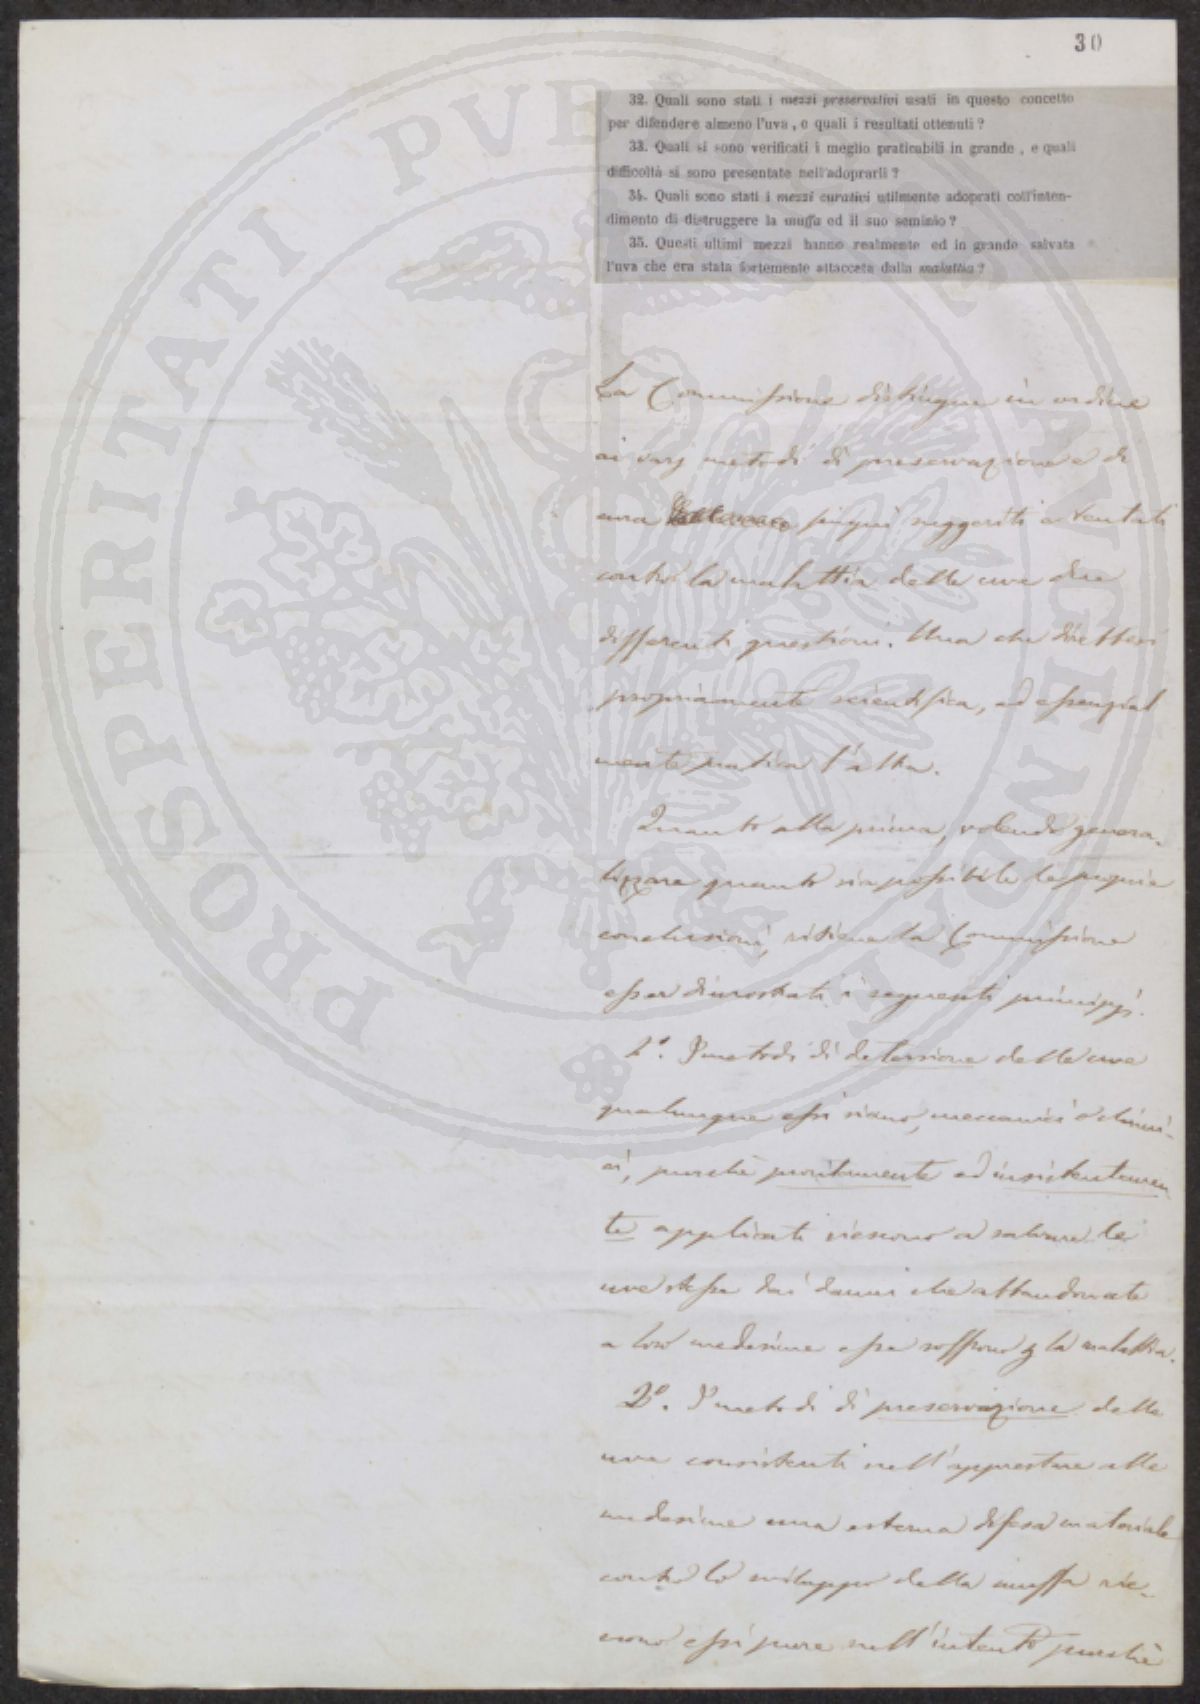 30
32. Quali sono stati i mezzi preservativi usati in questo concetto
per difendere almeno l'uva, e quali i resultati ottenuti?
33. Quali si sono verificati i meglio praticabili in grande, e quali
difficoltà si sono presentate nell'adoprarli?
34. Quali sono stati i mezzi curativi utilmente adoprati coll'inten-
dimento di distruggere la muffa ed il suo seminio?
35. Questi ultimi mezzi hanno realmente ed in grande salvata
l'uva che era stata fortemente attaccata dalla malattia?
La Commissione distingue in ordine
ai varj metodi di preservazione e di
cura fin qui suggeriti e tentati
contro la malattia delle uve due
differenti questioni. Una che direttesi
propriamente scientifica, ed essenzial
mente pratica l'altra.
Quanto alla prima, volendo genera-
lizzare quanto sia possibile le proprie
conclusioni, ritiene la Commissione
esser dimostrati i seguenti principj.
1º. I metodi di detersione delle uve
qualunque essi siano, meccanici o chimi-
ci, purchè prontamente ed insistentemen
te applicati riescono a salvare le
uve stesse dai danni che abbandonate
a loro medesime esse soffrono p la malattia.
2º. I metodi di preservazione delle
uve consistenti nell'apprestare alle
medesime una esterna difesa materiale
contro lo sviluppo della muffa rie-
scono essi pure nell'intento purchè
PROSPERITATI PUBLICAE AUGENDAE